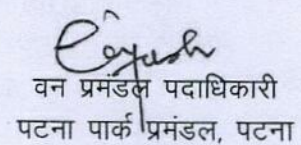 वन प्रमंडल पदाधिकारी
पटना पार्क प्रमंडल, पटना